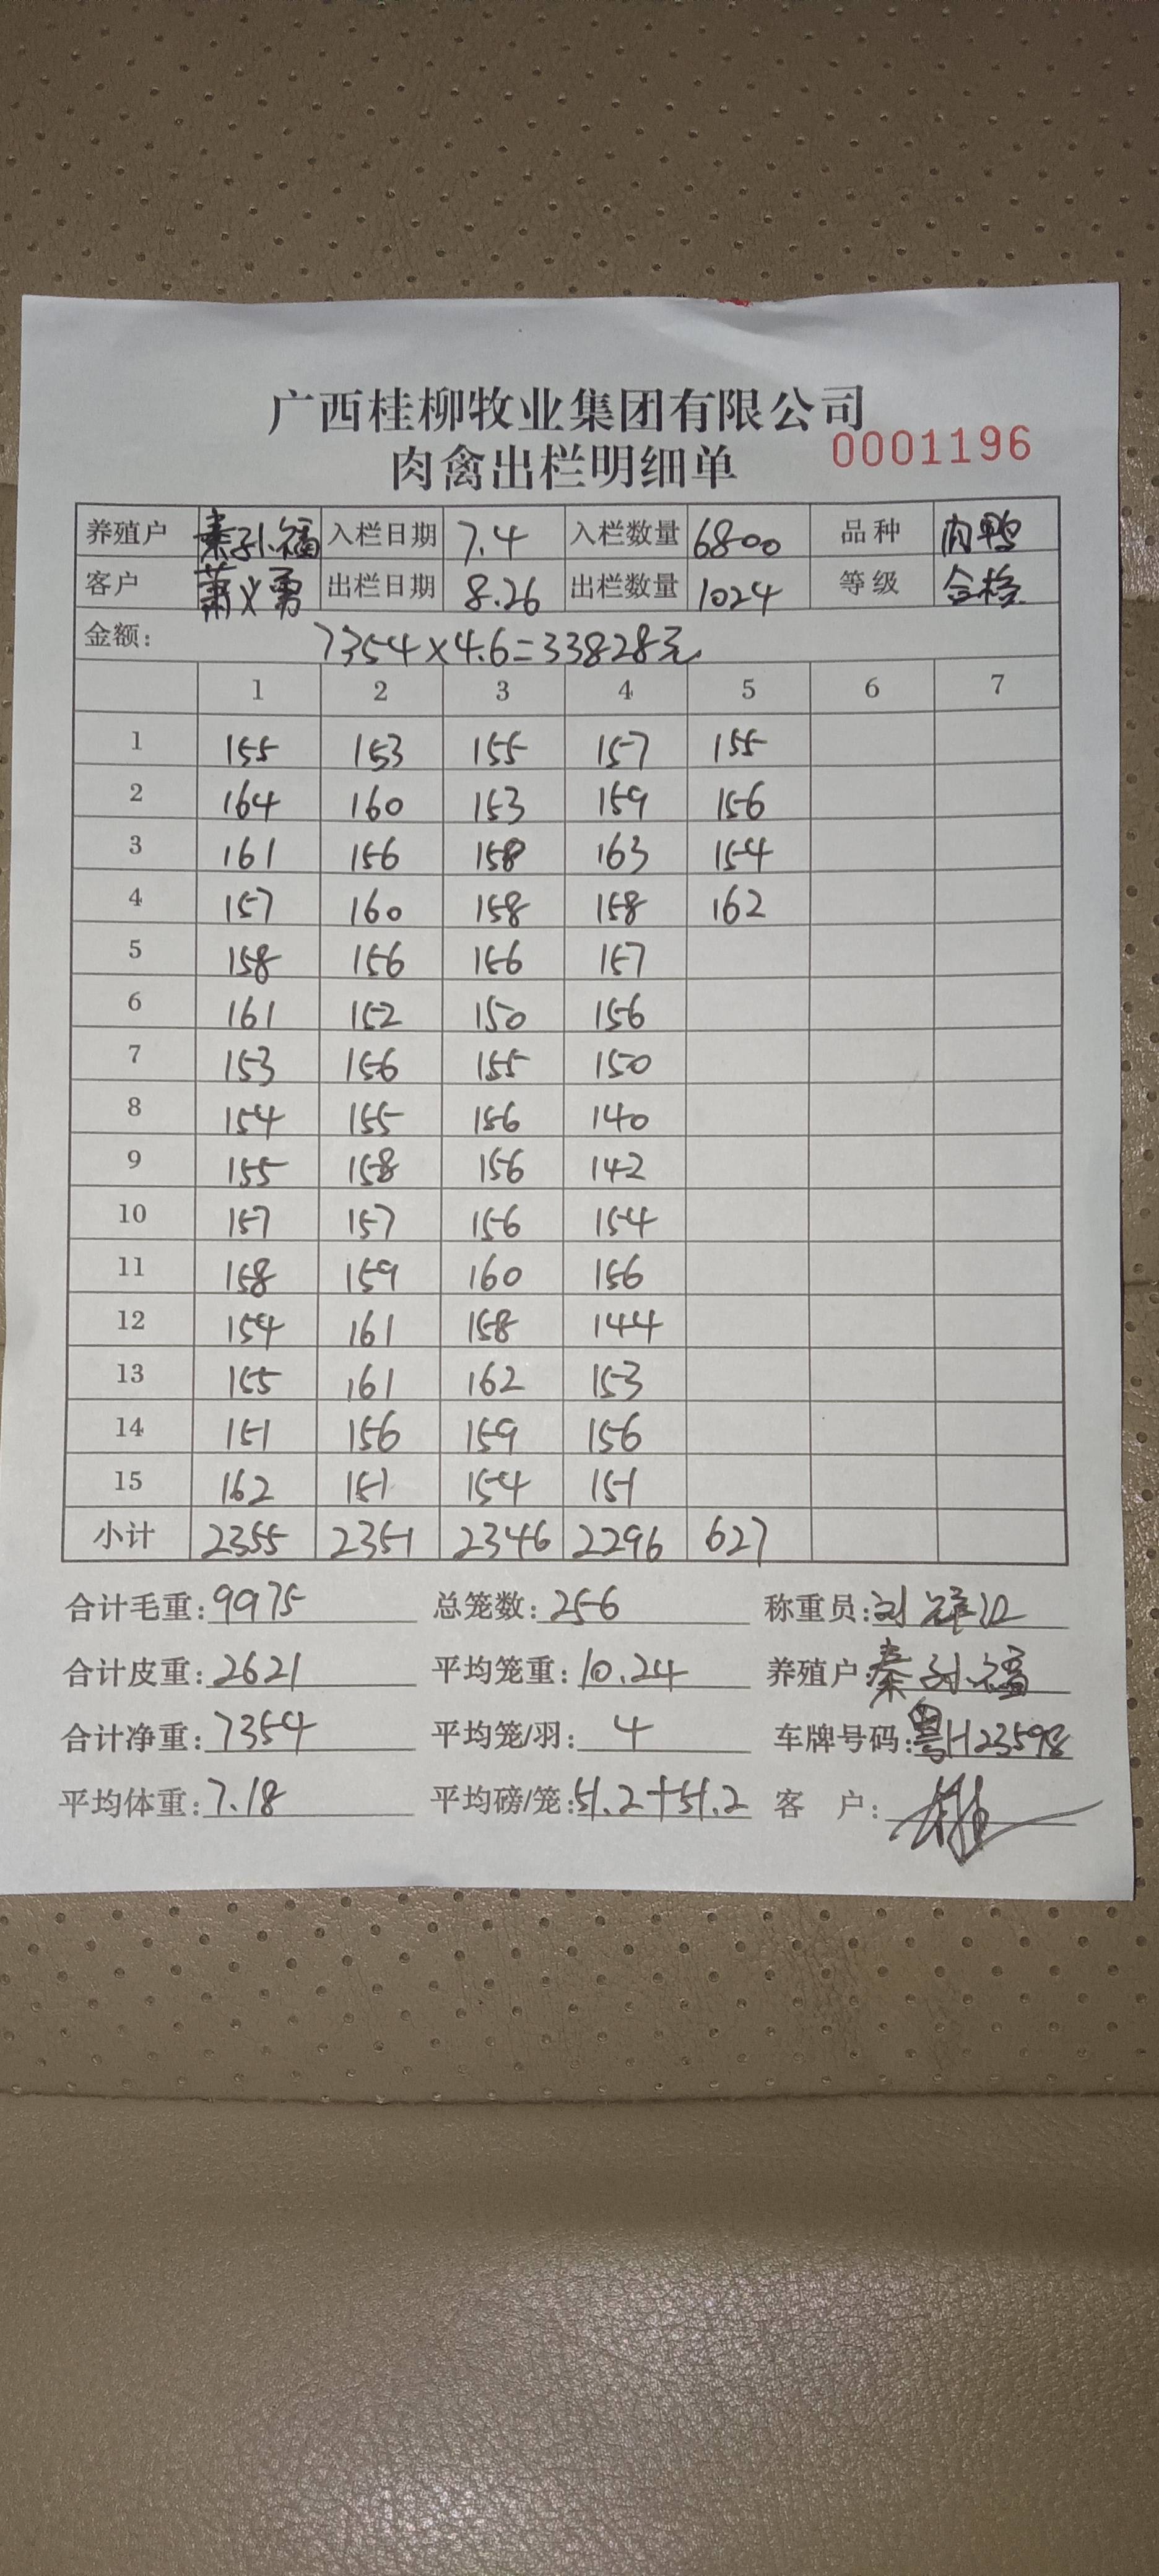 广西桂柳牧业集团有限公司
肉禽出栏明细单 0001196
养殖户 秦孙福 入栏日期 7.4 入栏数量 6800 品种 肉鸭
客户 萧义勇 出栏日期 8.26 出栏数量 1024 等级 合格
金额: 7354×4.6=33828元
1 2 3 4 5 6 7
1 155 153 155 157 155
2 164 160 153 159 156
3 161 156 158 163 154
4 157 160 158 158 162
5 158 156 156 157
6 161 152 150 156
7 153 156 155 150
8 154 155 156 140
9 155 158 156 142
10 157 157 156 154
11 158 159 160 156
12 154 161 158 144
13 155 161 162 153
14 151 156 159 156
15 162 151 154 151
小计 2355 2351 2346 2296 627
合计毛重:9975 总笼数:256 称重员:刘
合计皮重:2621 平均笼重:10.24 养殖户:秦孙福
合计净重:7354 平均笼/羽:4 车牌号码:粤H23598
平均体重:7.18 平均磅/笼:51.2+51.2 客 户: